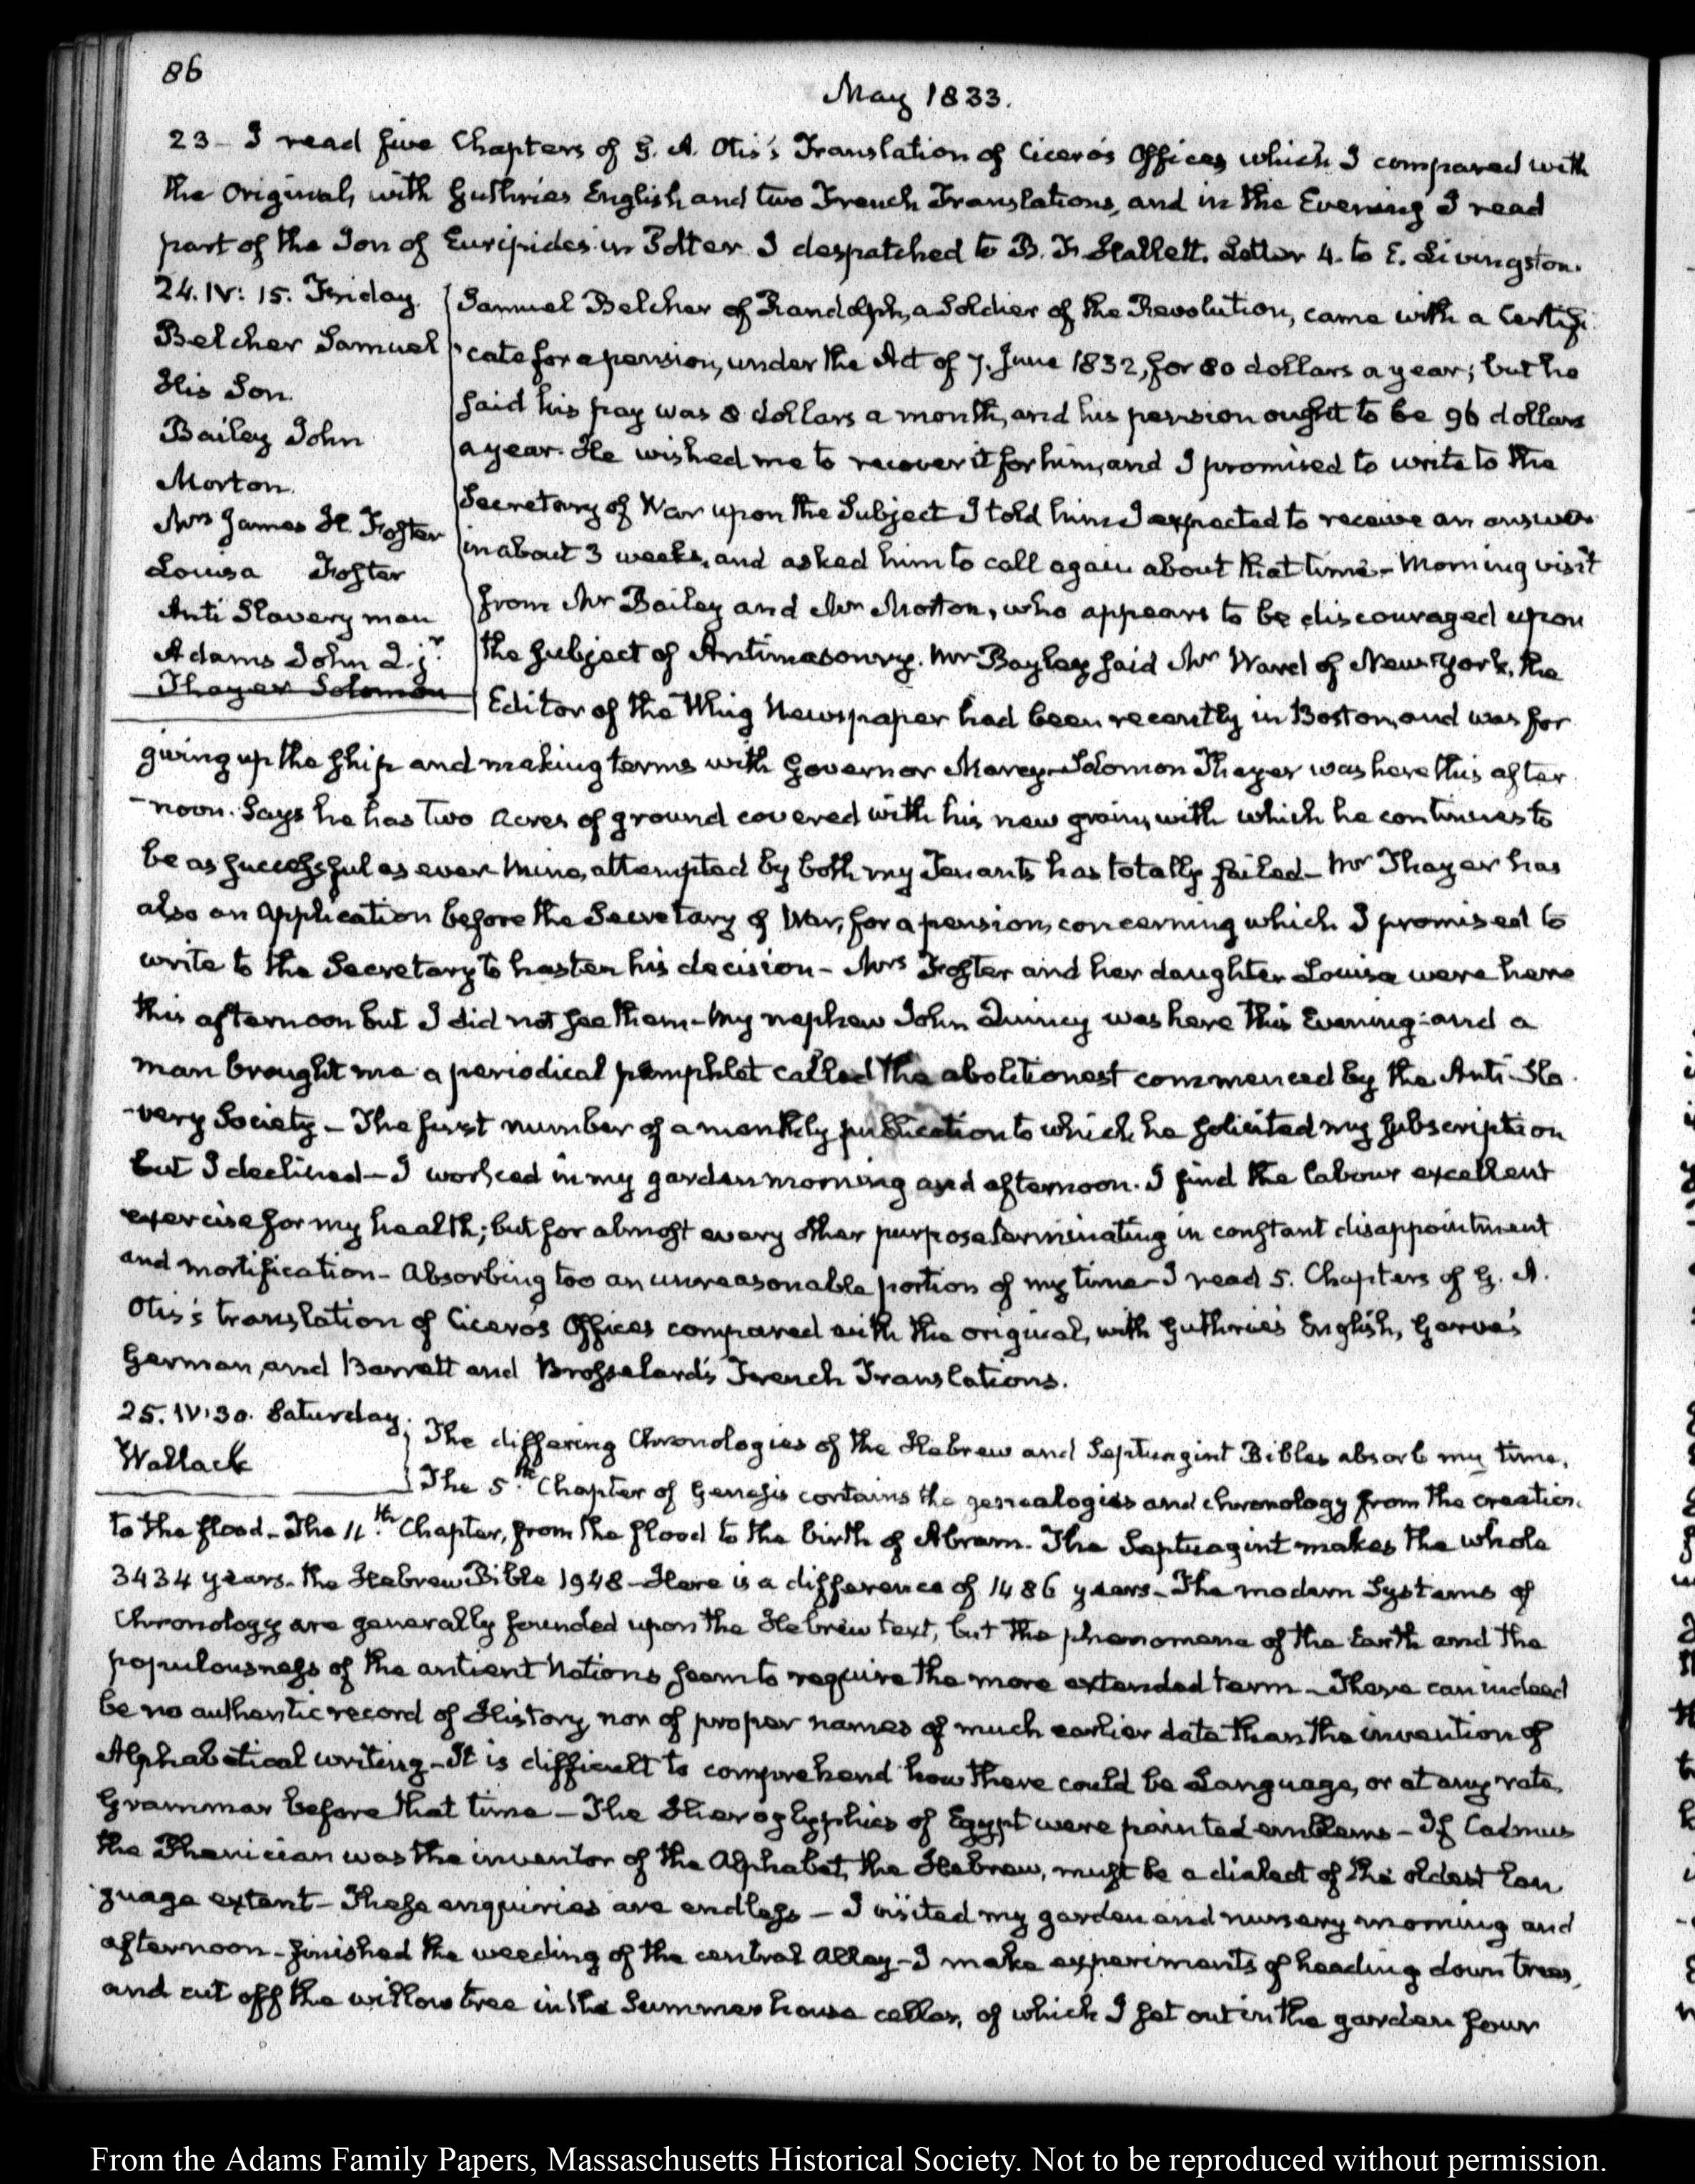 86
May 1833.
23- I read five Chapters of G. A. Otis's Translation of Cicero's Offices which I compared with
the Original, with Guthrie's English and two French Translations, and in the Evening I read
part of the Ion of Euripides in Potter. I despatched to B. F. Hallett. Letter 4. to E. Livingston.
24. IV: 15. Friday.
Belcher Samuel
His Son.
Bailey John
Morton.
Mrs James H. Foster
Louisa Foster
Anti Slavery man
Adams John Q. jr
Thayer Solomon
Samuel Belcher of Randolph, a Soldier of the Revolution, came with a Certifi
cate for a pension, under the Act of 7. June 1832, for 80 dollars a year; but he
said his pay was 8 dollars a month, and his pension ought to be 96 dollars
a year. He wished me to recover it for him, and I promised to write to the
Secretary of War upon the Subject I told him I expected to receive an answer
in about 3 weeks, and asked him to call again about that time. - Morning visit
from Mr Bailey and Mr Morton, who appears to be discouraged upon
the subject of Antimasonry. Mr Bayley said Mr Ward of New-York, the
Editor of the Whig Newspaper had been recently in Boston, and was for
giving up the ship and making terms with Governor Marcy - Solomon Thayer was here this after
-noon. Says he has two acres of ground covered with his new grain, with which he continues to
be as successful as ever. Mine, attempted by both my Tenants has totally failed - Mr Thayer has
also an application before the Secretary of War, for a pension, concerning which I promised to
write to the Secretary to hasten his decision - Mrs Foster and her daughter Louisa were here
this afternoon but I did not see them - My nephew John Quincy was here this Evening: and a
man brought me a periodical pamphlet called the abolitionest commenced by the Anti-Sla
-very Society - The first number of a monthly publication to which he solicited my subscription
but I declined - I worked in my garden morning and afternoon. I find the labour excellent
exercise for my health; but for almost every other purpose terminating in constant disappointment
and mortification - Absorbing too an unreasonable portion of my time - I read 5. Chapters of G. A.
Otis's translation of Cicero's Offices compared with the original, with Guthrie's English, Garve's
German, and Barrett and Brosselard's French Translations.
25. IV:30. Saturday.
Wallack
The differing Chronologies of the Hebrew and Septuagint Bibles absorb my time.
The 5.th Chapter of Genesis contains the genealogies and chronology from the creation
to the flood - The 11.th Chapter, from the flood to the birth of Abram. The Septuagint makes the whole
3434 years - the Hebrew Bible 1948 - Here is a difference of 1486 years - The modern Systems of
Chronology are generally founded upon the Hebrew text, but the phenomena of the Earth and the
populousness of the antient Nations seem to require the more extended term - There can indeed
be no authentic record of History, nor of proper names of much earlier date than the invention of
Alphabetical writing - It is difficult to comprehend how there could be Language, or at any rate,
Grammar before that time - The Hieroglyphics of Egypt were painted emblems - If Cadmus
the Phenician was the inventor of the Alphabet, the Hebrew, must be a dialect of the oldest lan
guage extant - These enquiries are endless - I visited my garden and nursery morning and
afternoon - finished the weeding of the central Alley - I make experiments of heading down trees,
and cut off the willow tree in the Summer house cellar, of which I set out in the garden four
From the Adams Family Papers, Massaschusetts Historical Society. Not to be reproduced without permission.